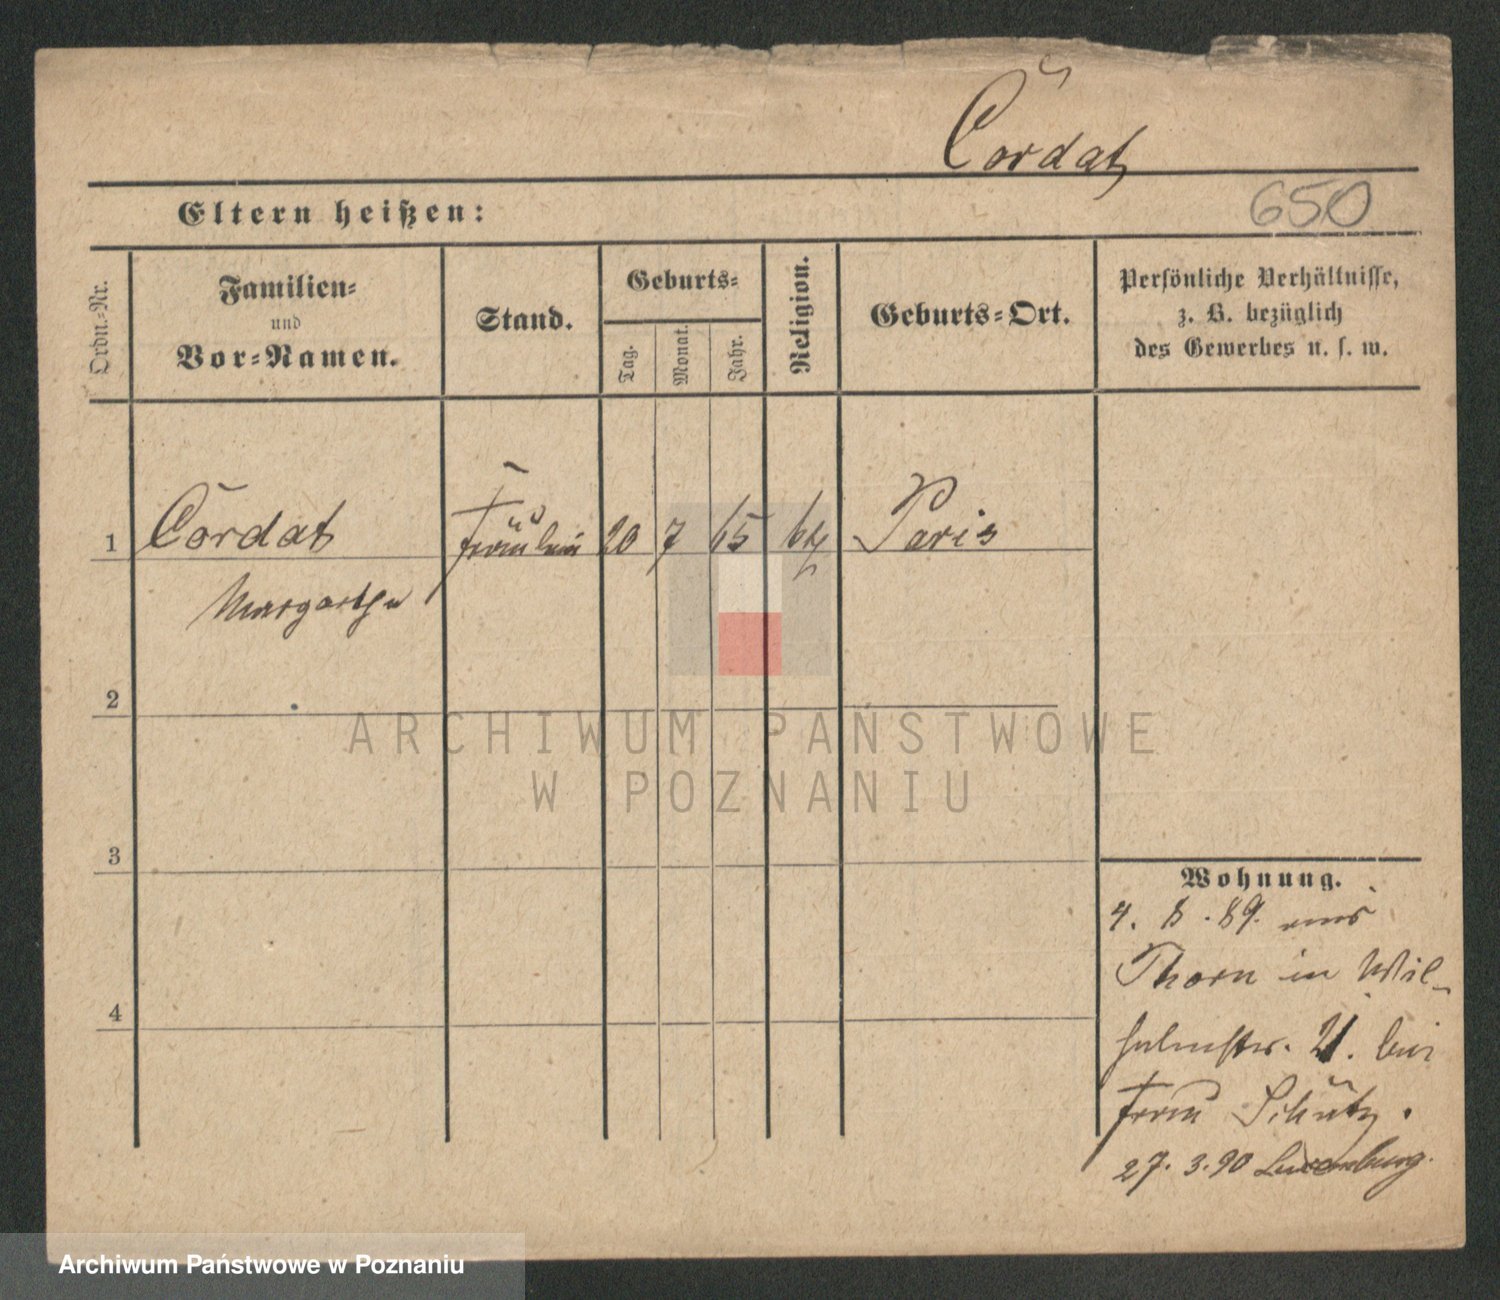 Cordat
650
Eltern heißen:
Ordn.-Nr.
Familien-
und
Vor-Namen.
Stand.
Geburts-
Tag.
Monat.
Jahr.
Religion.
Geburts-Ort.
Persönliche Verhältnisse,
z. B. bezüglich
des Gewerbes u. s. w.
1 Cordat Fräulein 20 7 65 Paris
2
ARCHIWUM PAŃSTWOWE
W POZNANIU
3
Wohnung.
4. 8. 89. aus
Thorn in Wil-
helmstr. 21. bei
Frau Schütz.
27. 3. 90 Luxemburg.
4
Archiwum Państwowe w Poznaniu